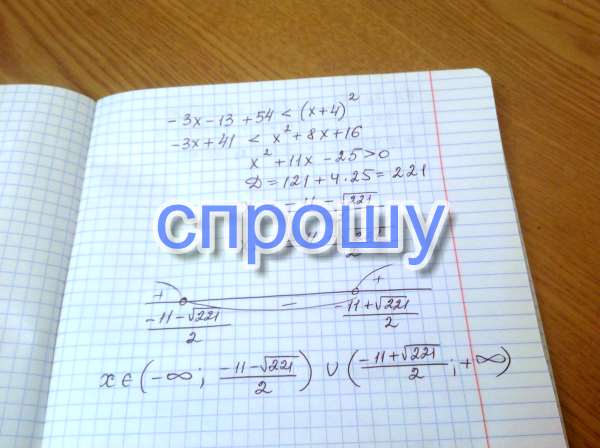 -3x-13+54<(x+4)²
-3x+41 < x²+8x+16
x²+11x-25>0
D=121+4·25=221
-11-√221
спрошу
2
+ - +
(-11-√221)/2 (-11+√221)/2
x∈(-∞; (-11-√221)/2) ∪ ((-11+√221)/2; +∞)